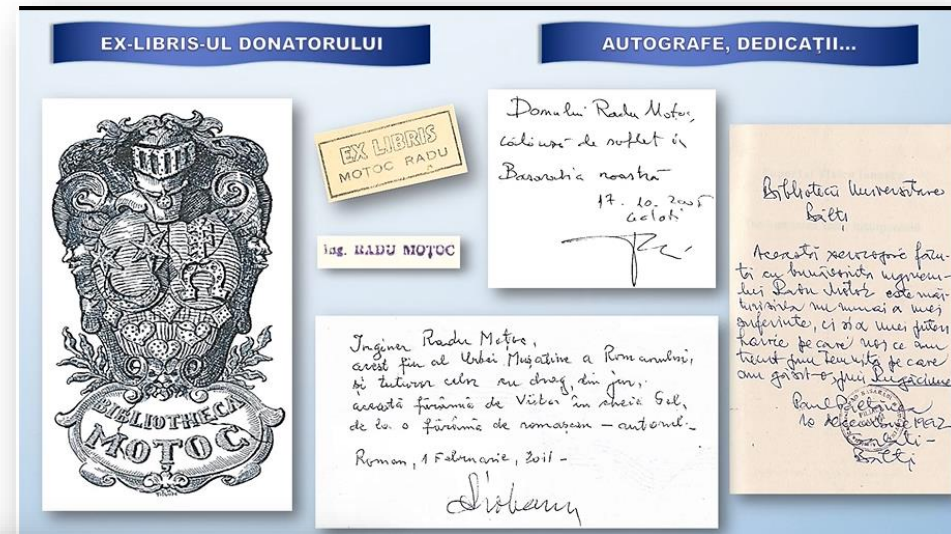 EX-LIBRIS-UL DONATORULUI
AUTOGRAFE, DEDICAȚII...
BIBLIOTHECA
MOTOC
EX LIBRIS
MOTOC RADU
Ing. RADU MOȚOC
Domnului Radu Motoc,
călăuză de suflet în
Basarabia noastră
17. 10. 2005
Galați
Inginer Radu Moțoc,
acest fiu al Urbei Mușatine a Romanului,
și tuturor celor cu drag, din jur,
această fărâmă de Vistor în cheia Sol,
de la o fărâmă de romașcan – autorul –
Roman, 1 Februarie, 2011 –
Bibliotecii Universitare
Bălți
Această xerocopie făcu-
tă cu bunăvoința
lui Radu Motoc este măr-
turisirea nu numai a unei
suferințe, ci și a unei puteri
pe care noi ce am
trecut prin temniță pe care
am găsit-o prin Rugăciune
10 decembrie 1992
Bălți